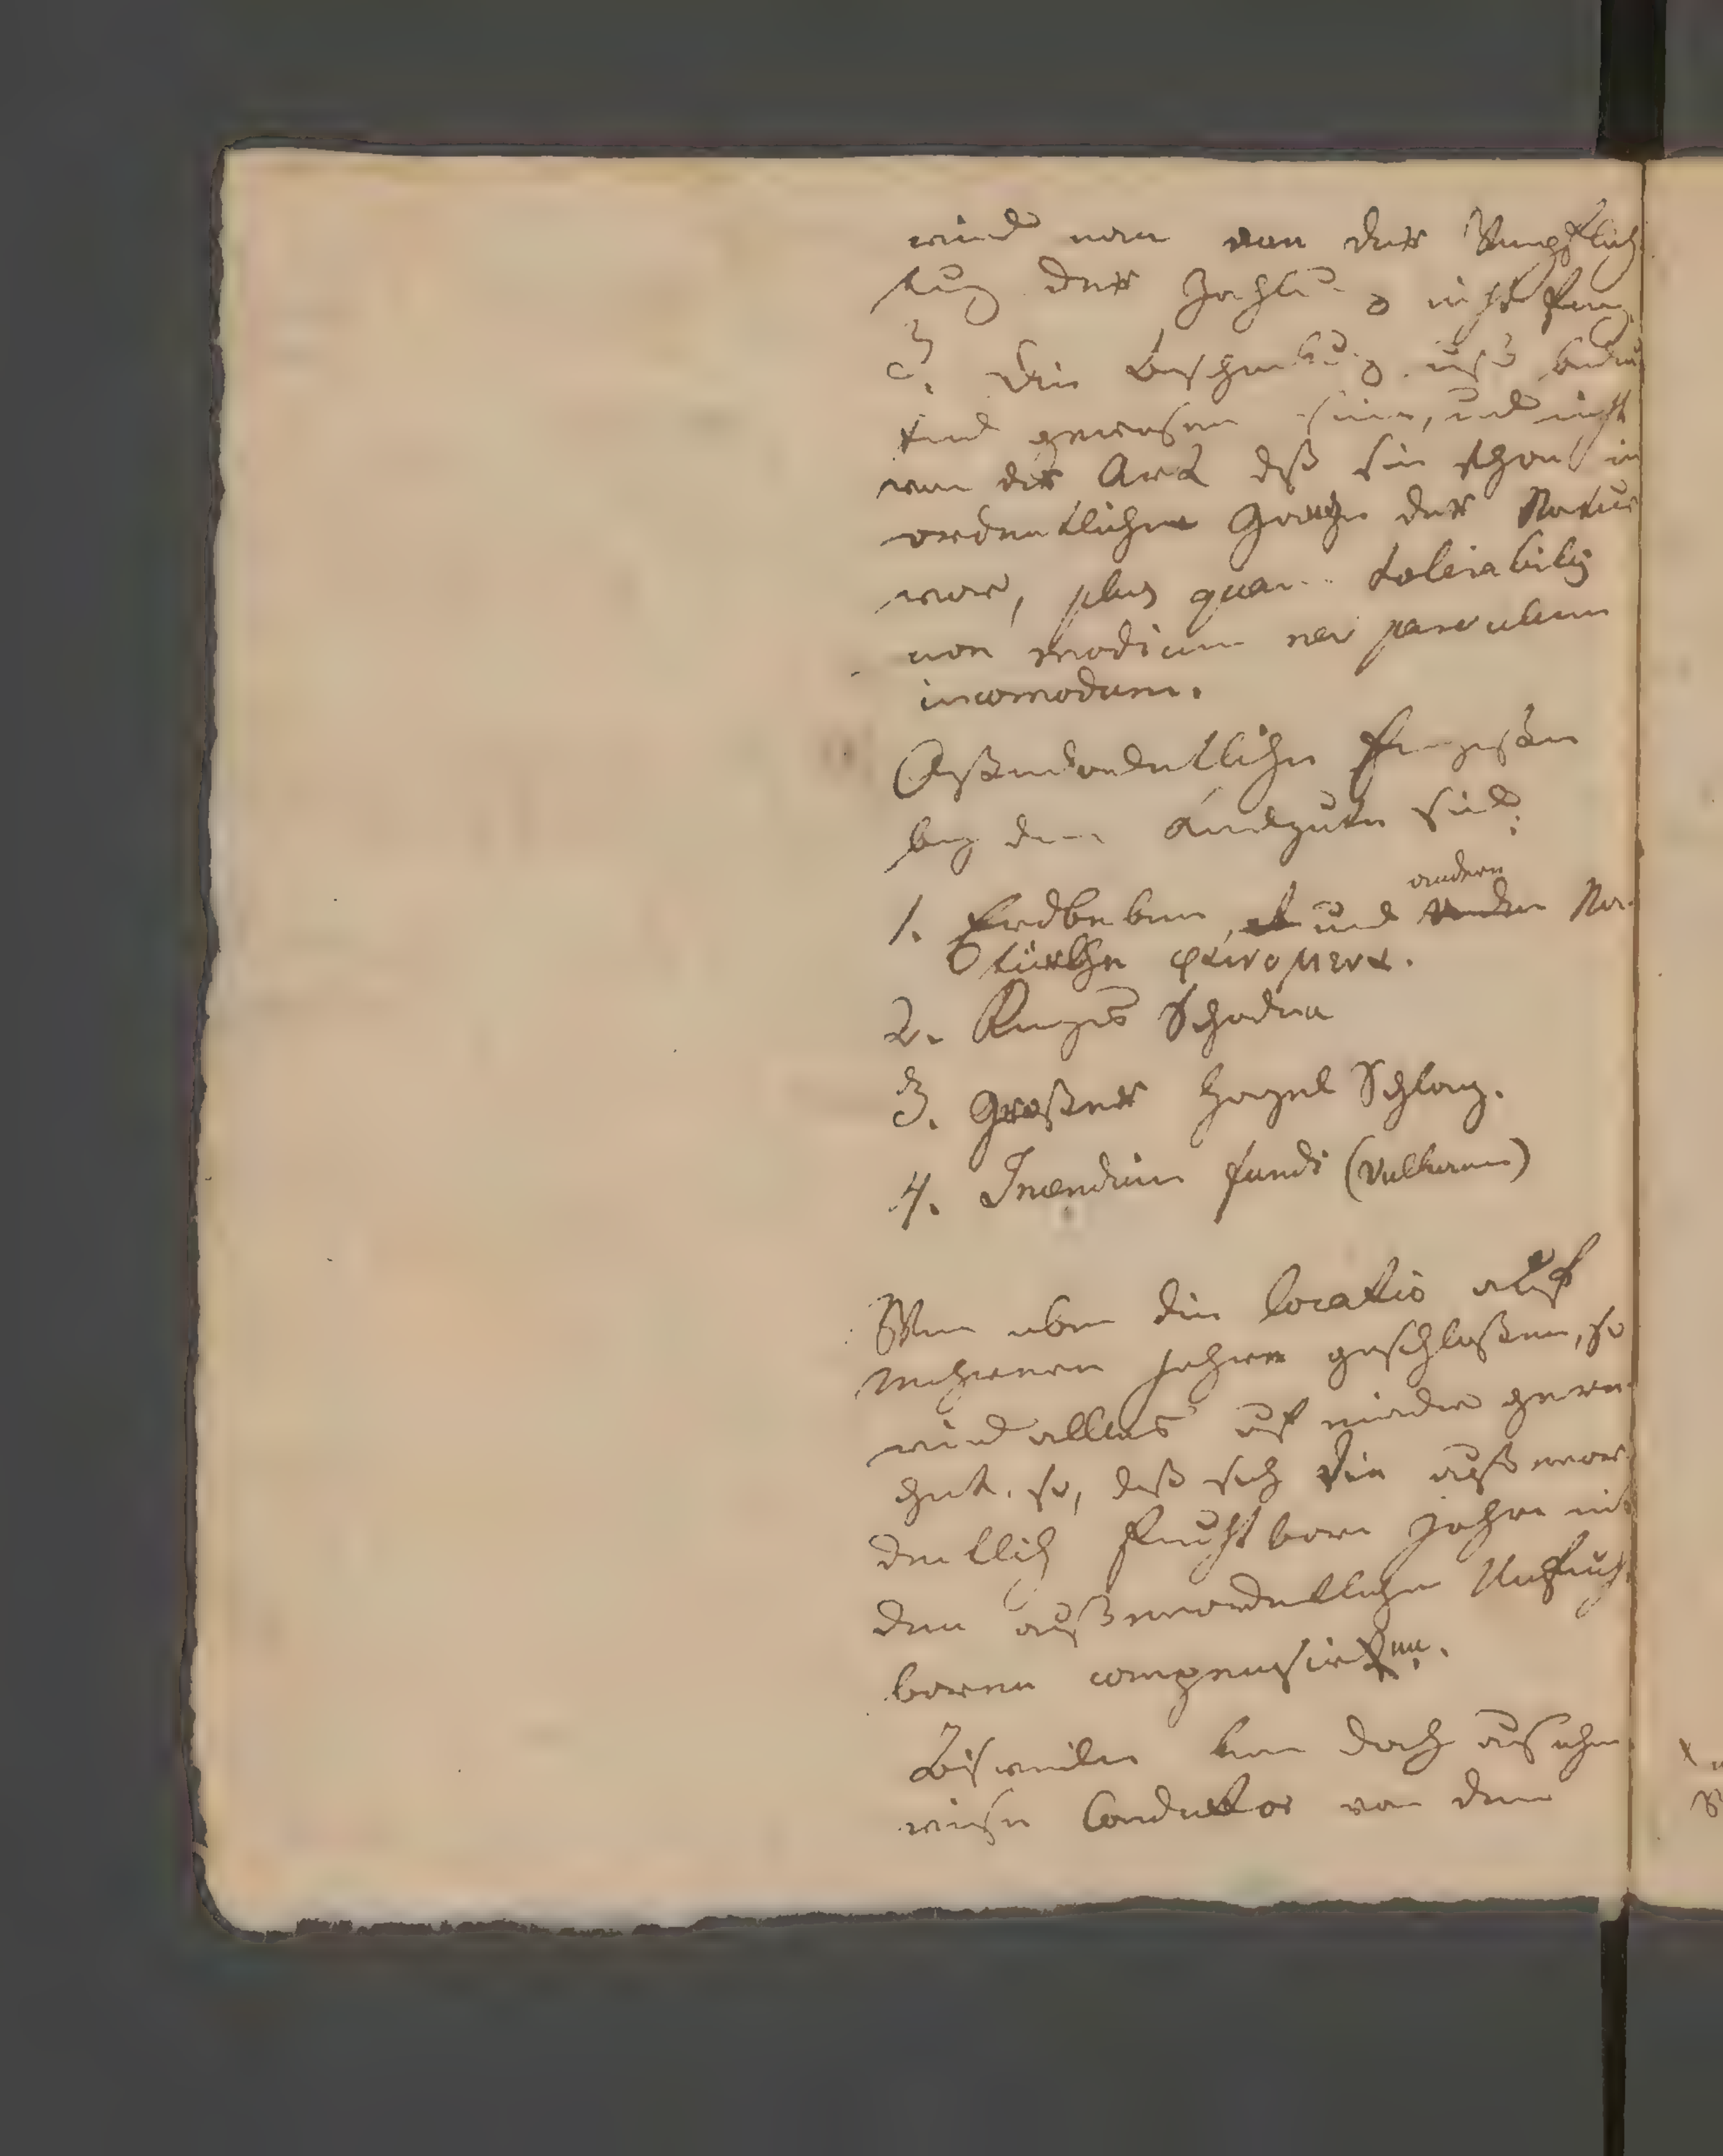 wird man von der Verpflich
tung der Zahlung nicht frey.
3. die Beschädigung muß bedeu
tend gewesen seyn, und nicht
von der Art daß sie schon im
ordentlichen Gange der Natur
war, plus quam tolerabilis
non modicum nec parvulum
incomodum.
Außerordentliche
bey den Landgütern sind:
1. Erdbeben, und andern Na-
türliche φαινομενα.
2. Krieges Schaden
3. Großer Hagel Schlag.
4. Incendium fundi (Vulkane)
Wenn aber die locatio auf
mehreren Jahren geschloßen, so
wird alles auf einander gerech
net. so, daß sich die außeror
dentlich fruchtbaren Jahre mit
den außerordentlichen Unfrucht
baren compensiren.
Bisweilen kan doch ausnahms
weise Conductor von dem